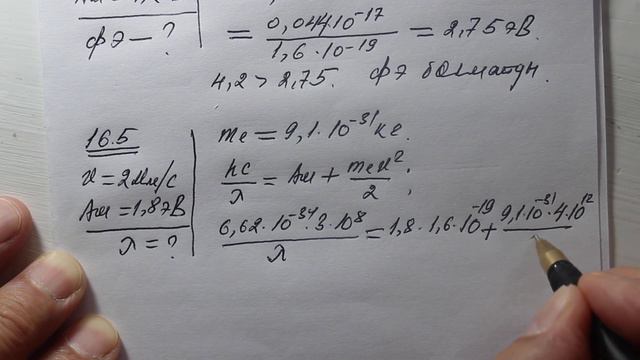 ФЭ — ?
= 0,044·10⁻¹⁷ / 1,6·10⁻¹⁹ = 2,75 эВ.
4,2 > 2,75. ФЭ
16.5
u = 2Мм/с
Aчи = 1,8эВ
λ = ?
me = 9,1·10⁻³¹ кг.
hc / λ = Aчи + meu² / 2 ;
6,62·10⁻³⁴·3·10⁸ / λ = 1,8·1,6·10⁻¹⁹ + 9,1·10⁻³¹·4·10¹²